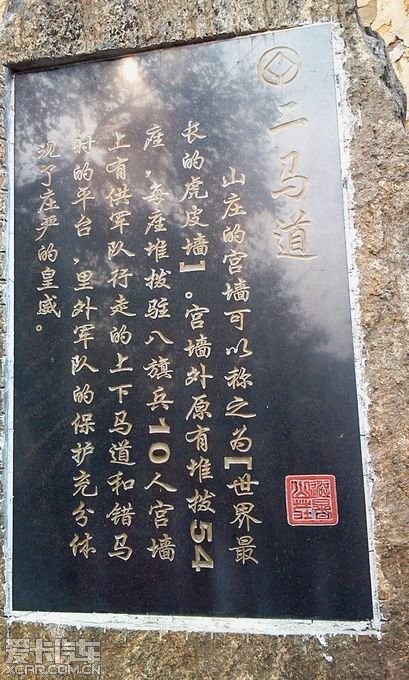 二马道
山庄的宫墙可以称之为【世界最
长的虎皮墙】。宫墙外原有堆拔54
座，每座堆拔驻八旗兵10人宫墙
上有供军队行走的上下马道和错马
时的平台，里外军队的保护充分体
现了庄严的皇威。
避暑
山莊
爱卡汽车
XCAR.COM.CN